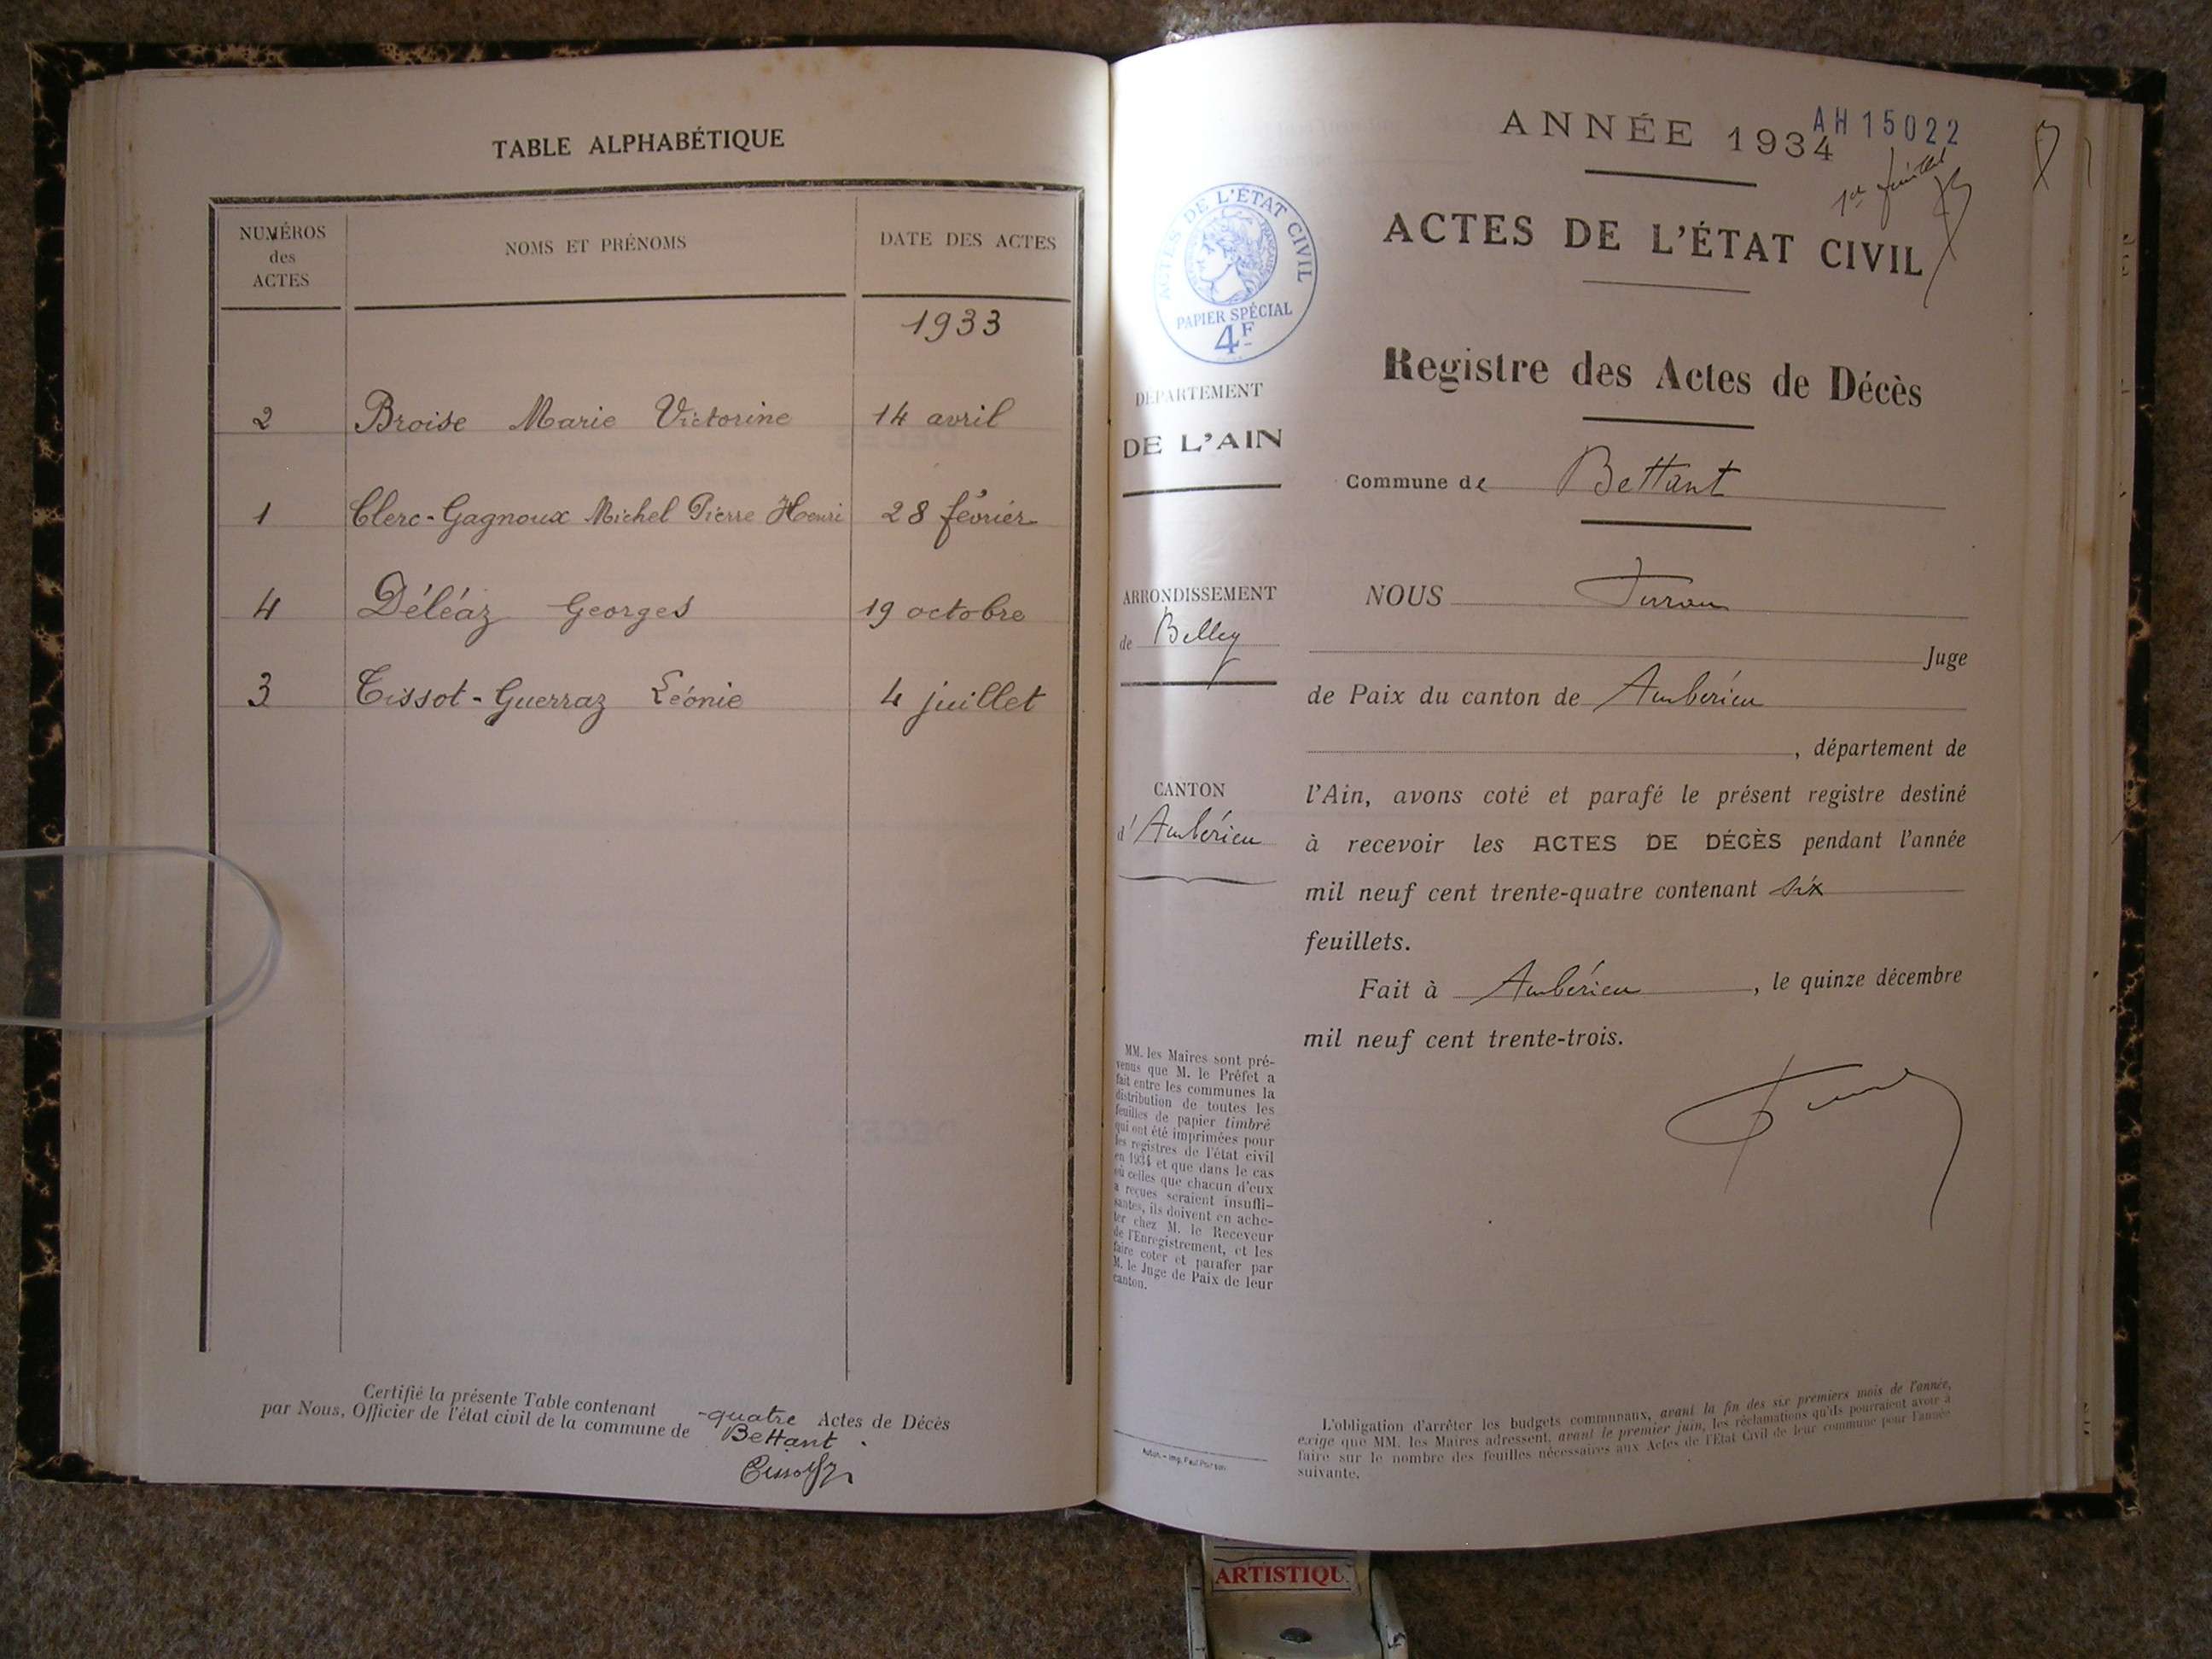 TABLE ALPHABÉTIQUE
NUMÉROS
des
ACTES
NOMS ET PRÉNOMS
DATE DES ACTES
1933
2 Broise Marie Victorine 14 avril
1 Clerc-Gagnoux Michel Pierre Henri 28 février
4 Déléaz Georges 19 octobre
3 Tissot-Guerraz Léonie 4 juillet
Certifié la présente Table contenant -quatre Actes de Décès
par Nous, Officier de l'état civil de la commune de Bettant.
ANNÉE 1934
AH 15022
1er feuillet
ACTES DE L'ÉTAT CIVIL
PAPIER SPÉCIAL
4F
ACTES DE L'ÉTAT CIVIL
Registre des Actes de Décès
DÉPARTEMENT
DE L'AIN
Commune de Bettant
ARRONDISSEMENT
de Belley
CANTON
d'Ambérieu
MM. les Maires sont pré-
venus que M. le Préfet a
fait entre les communes la
distribution de toutes les
feuilles de papier timbré
qui ont été imprimées pour
les registres de l'état civil
en 1934 et que dans le cas
où celles que chacun d'eux
a reçues seraient insuffi-
santes, ils doivent en ache-
ter chez M. le Receveur
de l'Enregistrement, et les
faire coter et parafer par
M. le Juge de Paix de leur
canton.
NOUS
Juge
de Paix du canton de Ambérieu
, département de
l'Ain, avons coté et parafé le présent registre destiné
à recevoir les ACTES DE DÉCÈS pendant l'année
mil neuf cent trente-quatre contenant six
feuillets.
Fait à Ambérieu, le quinze décembre
mil neuf cent trente-trois.
L'obligation d'arrêter les budgets communaux, avant la fin des six premiers mois de l'année,
exige que MM. les Maires adressent, avant le premier juin, les réclamations qu'ils pourraient avoir à
faire sur le nombre des feuilles nécessaires aux Actes de l'État Civil de leur commune pour l'année
suivante.
ARTISTIQU